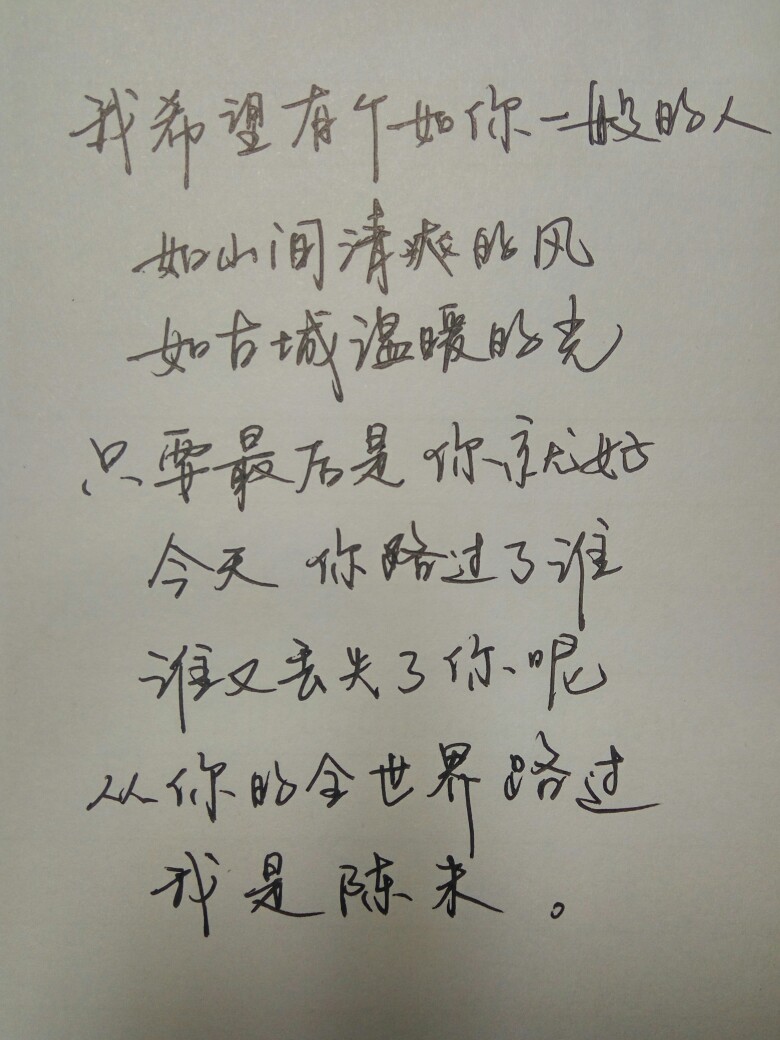 我希望有个如你一般的人
如山间清爽的风
如古城温暖的光
只要最后是你就好
今天 你路过了谁
谁又丢失了你呢
从你的全世界路过
我是陈末。